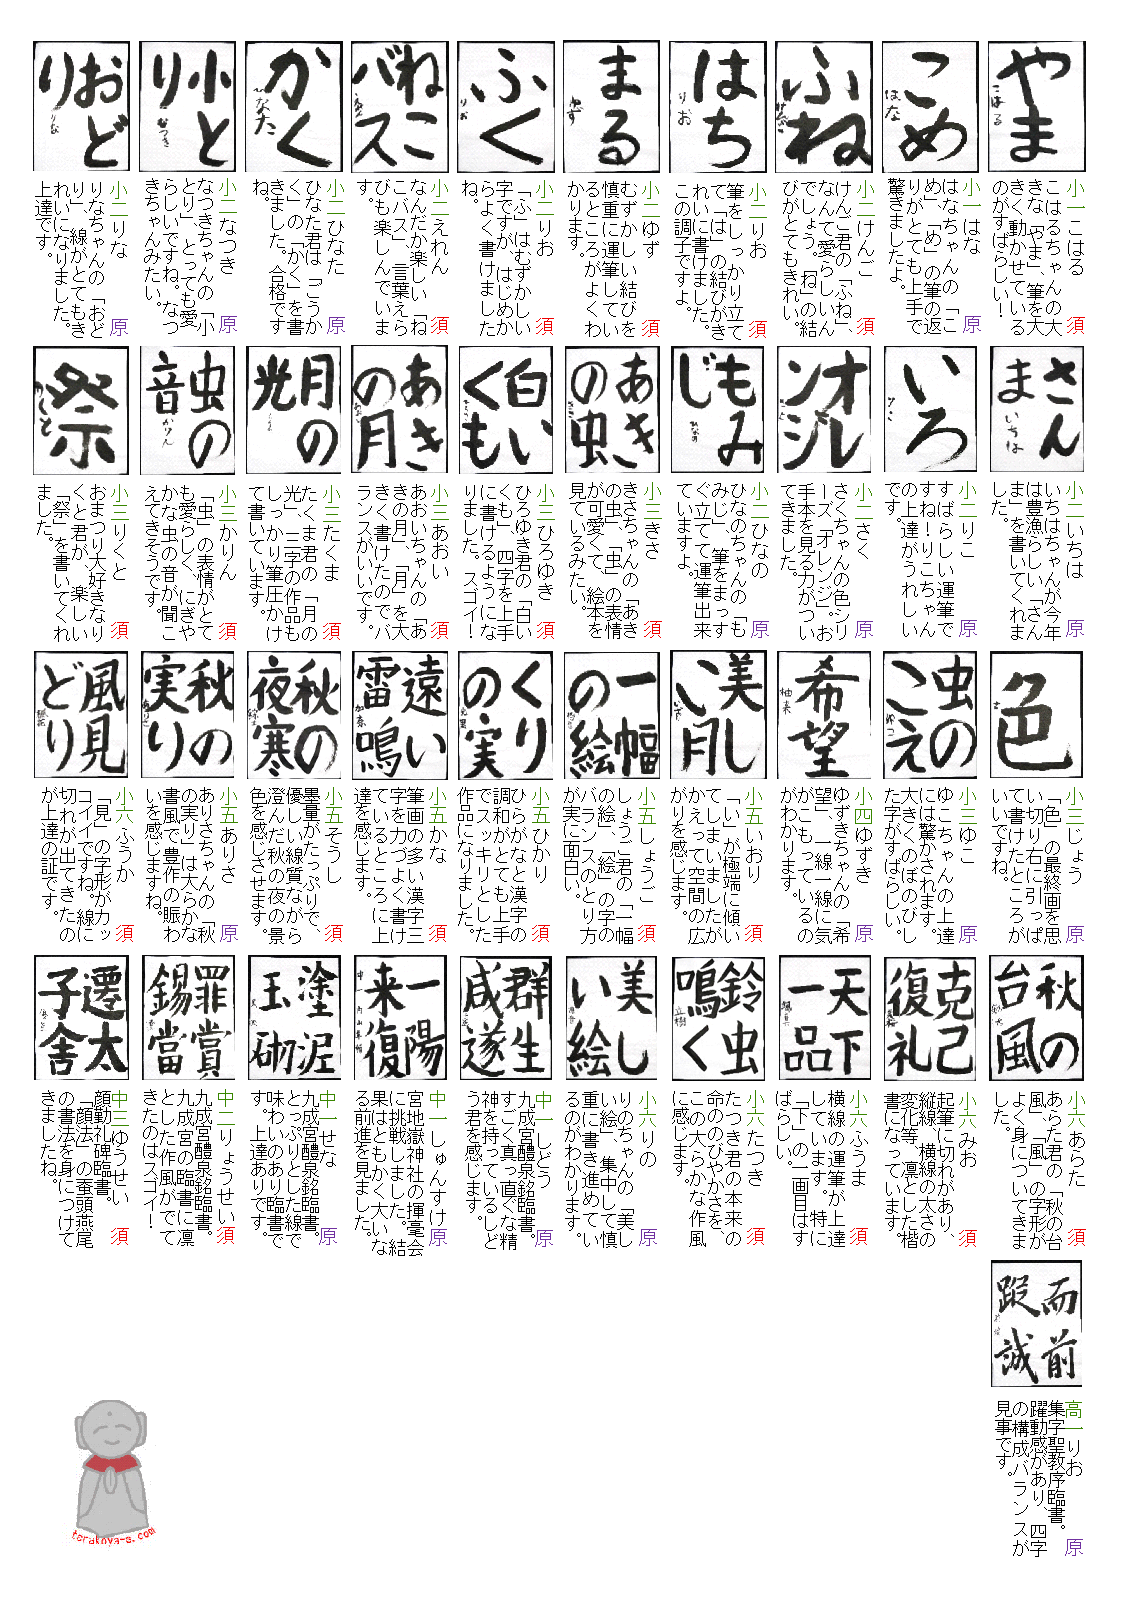 やま
小一こはる 原
こはるちゃんの大
きな「やま」、筆を大
きく動かせている
のがすばらしい！
こめ
小一はな 原
はなちゃんの「こ
め」、「め」の筆の返
りがとても上手で
驚きましたよ。
ふね
小二けんご 須
けんご君の「ふね」、
なんて愛らしいん
でしょう。「ね」の結
びがとてもきれい。
はち
小二りお 須
筆をしっかり立て
て「は」の結びがき
れいに書けました。
この調子ですよ。
まる
小二ゆず 須
むずかしい結びを
慎重に運筆してい
るところがよくわ
かります。
ふく
小二りお 須
「ふ」はむずかしい
字ですが、はじめか
らよく書けました
ね。
ねこバス
小二えれん 須
なんだか楽しい「ね
こバス」、言葉えら
びも楽しんでいま
す。
かく
小二ひなた 原
ひなた君は「ごうか
く」の「かく」を書
きました。合格です
ね。
小とり
小二なつき 原
なつきちゃんの「小
とり」、とっても愛
らしいですね。なつ
きちゃんみたい。
おどり
小二りな 原
りなちゃんの「おど
り」、線がとてもき
れいになりました。
上達です。
さんま
小二いちは 原
いちはちゃんが今年
は豊漁らしい「さん
ま」を書いてくれま
した。
いろ
小二りこ 原
すばらしい運筆で
すね！りこちゃん
の上達がうれしい
です。
オレンジ
小二さく 原
さくちゃんの色シリ
ーズ「オレンジ」。お
手本を見る力がつい
てきました。
もみじ
小二ひなの 原
ひなのちゃんの「も
みじ」、筆をまっす
ぐ立てて運筆出来
ていますよ。
あきの虫
小三きさ 須
きさちゃんの「あき
の虫」、「虫」の表情
が可愛くて、絵本を
見ているみたい。
白いくも
小三ひろゆき 須
ひろゆき君の「白い
くも」、四字を上手
に書けるようにな
りました。スゴイ！
あきの月
小三あおい 須
あおいちゃんの「あ
きの月」、「月」を大
きく書けたのでバ
ランスがいいです。
月の光
小三たくま 須
たくま君の「月の
光」、三字の作品も
しっかり筆圧かけ
て書いています。
虫の音
小三かりん 須
「虫」の表情がとて
も愛らしく、にぎや
かな虫の音が聞こ
えてきそうです。
祭
小三りくと 須
おまつり大好きなり
くと君が、楽しい
「祭」を書いてくれ
ました。
色
小三じょう 原
「色」の最終画を思
い切り右に引っぱ
って書けたところが
いいですね。
虫のこえ
小三ゆこ 須
ゆこちゃんの上達
には驚かされます。
大きくのぼのびし
た字がすばらしい。
希望
小四ゆずき 原
ゆずきちゃんの「希
望」、一線一線に気
がこもっているの
がわかります。
美しい月
小五いおり 須
「い」が極端に傾い
てしまいましたが
かえって空間の広
がりを感じます。
一幅の絵
小五しょうご 須
しょうご君の「一幅
の絵」、「絵」の字の
バランスのとり方
が実に面白い。
くりの実
小五ひかり 須
ひらがなと漢字の
調和がとても上手
でスッキリとした
作品になりました。
遠い雷鳴
小五かな 須
筆画の多い漢字三
字を力づよく書け
ているところに上
達を感じます。
秋の夜寒
小五そうし 須
墨量がたっぷりで、
優しい線質ながら
澄んだ秋の夜の景
色を感じさせます。
秋の実り
小五ありさ 原
ありさちゃんの「秋
の実り」は大らかな
書風で豊作の賑わ
いを感じますね。
風見どり
小六ふうか 須
「見」の字形がカッ
コイイですね。線に
切れが出てきたの
が上達の証です。
秋の台風
小六あらた 須
あらた君の「秋の台
風」、「風」の字形が
よく身についてきま
した。
克己復礼
小六みお 須
起筆に切れがあり、
縦線、横線の太さの
変化等、凛とした楷
書になっています。
天下一品
小六ふうま 須
横線の運筆が上達
しています。特に
「下」の一画目はす
ばらしい。
鈴虫鳴く
小六たつき 須
たつき君の本来の
命ののびやかさを、
この大らかな作風
に感じます。
美しい絵
小六りの 原
りのちゃんの「美し
い絵」、集中して慎
重に書き進めてい
るのがわかります。
群生咸遂
中一しどう 原
九成宮醴泉銘臨書。
すごく真っ直ぐな精
神を持っているしど
う君を感じます。
一陽来復
中一しゅんすけ 原
宮地嶽神社の揮毫会
に挑戦しました。結
果はともかく大いな
る前進を見ました。
塗泥玉砌
中一せな 原
九成宮醴泉銘臨書。
とっぷりとした線で
味わいのあり臨書で
す。上達ありです。
罪賞錫當
中二りょうせい 須
九成宮醴泉銘臨書。
九成宮の臨書に凛
とした作風がでて
きたのはスゴイ！
遷太子舎
中三ゆうせい 須
顔勤礼碑臨書。
「顔法」の蚕頭燕尾
の書法を身につけて
きましたね。
而前蹤誠
高一りお 原
集字聖教序臨書。
躍動感があり、四字
の構成バランスが
見事です。
terakoya-s.com